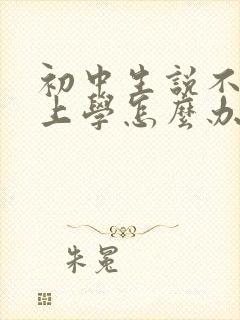 初中生説不
上學怎麼办
朱冕